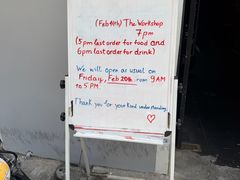 (Feb 19th) The Workshop
7 pm
(5 pm last order for food and
6 pm last order for drink)
We will open as usual on
Friday, Feb 20th from 9 AM
to 5 PM.
Thank you for your kind understanding.